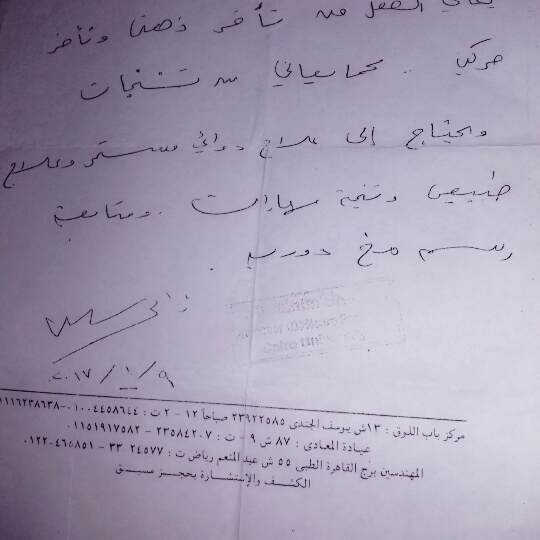 يعاني الطفل من تأخر ذهني وتأخر
حركي .. كما يعاني من تشنجات
ويحتاج إلى علاج دوائي مستمر وعلاج
طبيعي وتنمية مهارات . ومتابعة
رسم مخ دوري .
٢٠١٧/١/٩
مركز باب اللوق : ١٣ش يوسف الجندى ٢٣٩٢٢٥٨٥ صباحاً ١٢ - ٢ ت : ٠١٠٠٤٤٥٨٦٤٤
عيادة المعادى : ٨٧ ش ٩ - ت : ٢٣٥٨٤٢٠٧ - ٠١١٥١٩١٧٥٨٢
المهندسين برج القاهرة الطبى ٥٥ ش عبد المنعم رياض ت : ٢٤٥٧٧ ٣٣ - ٠١٢٢٠٤٦٥٨٥١
الكشف والإستشارة بحجز مسبق